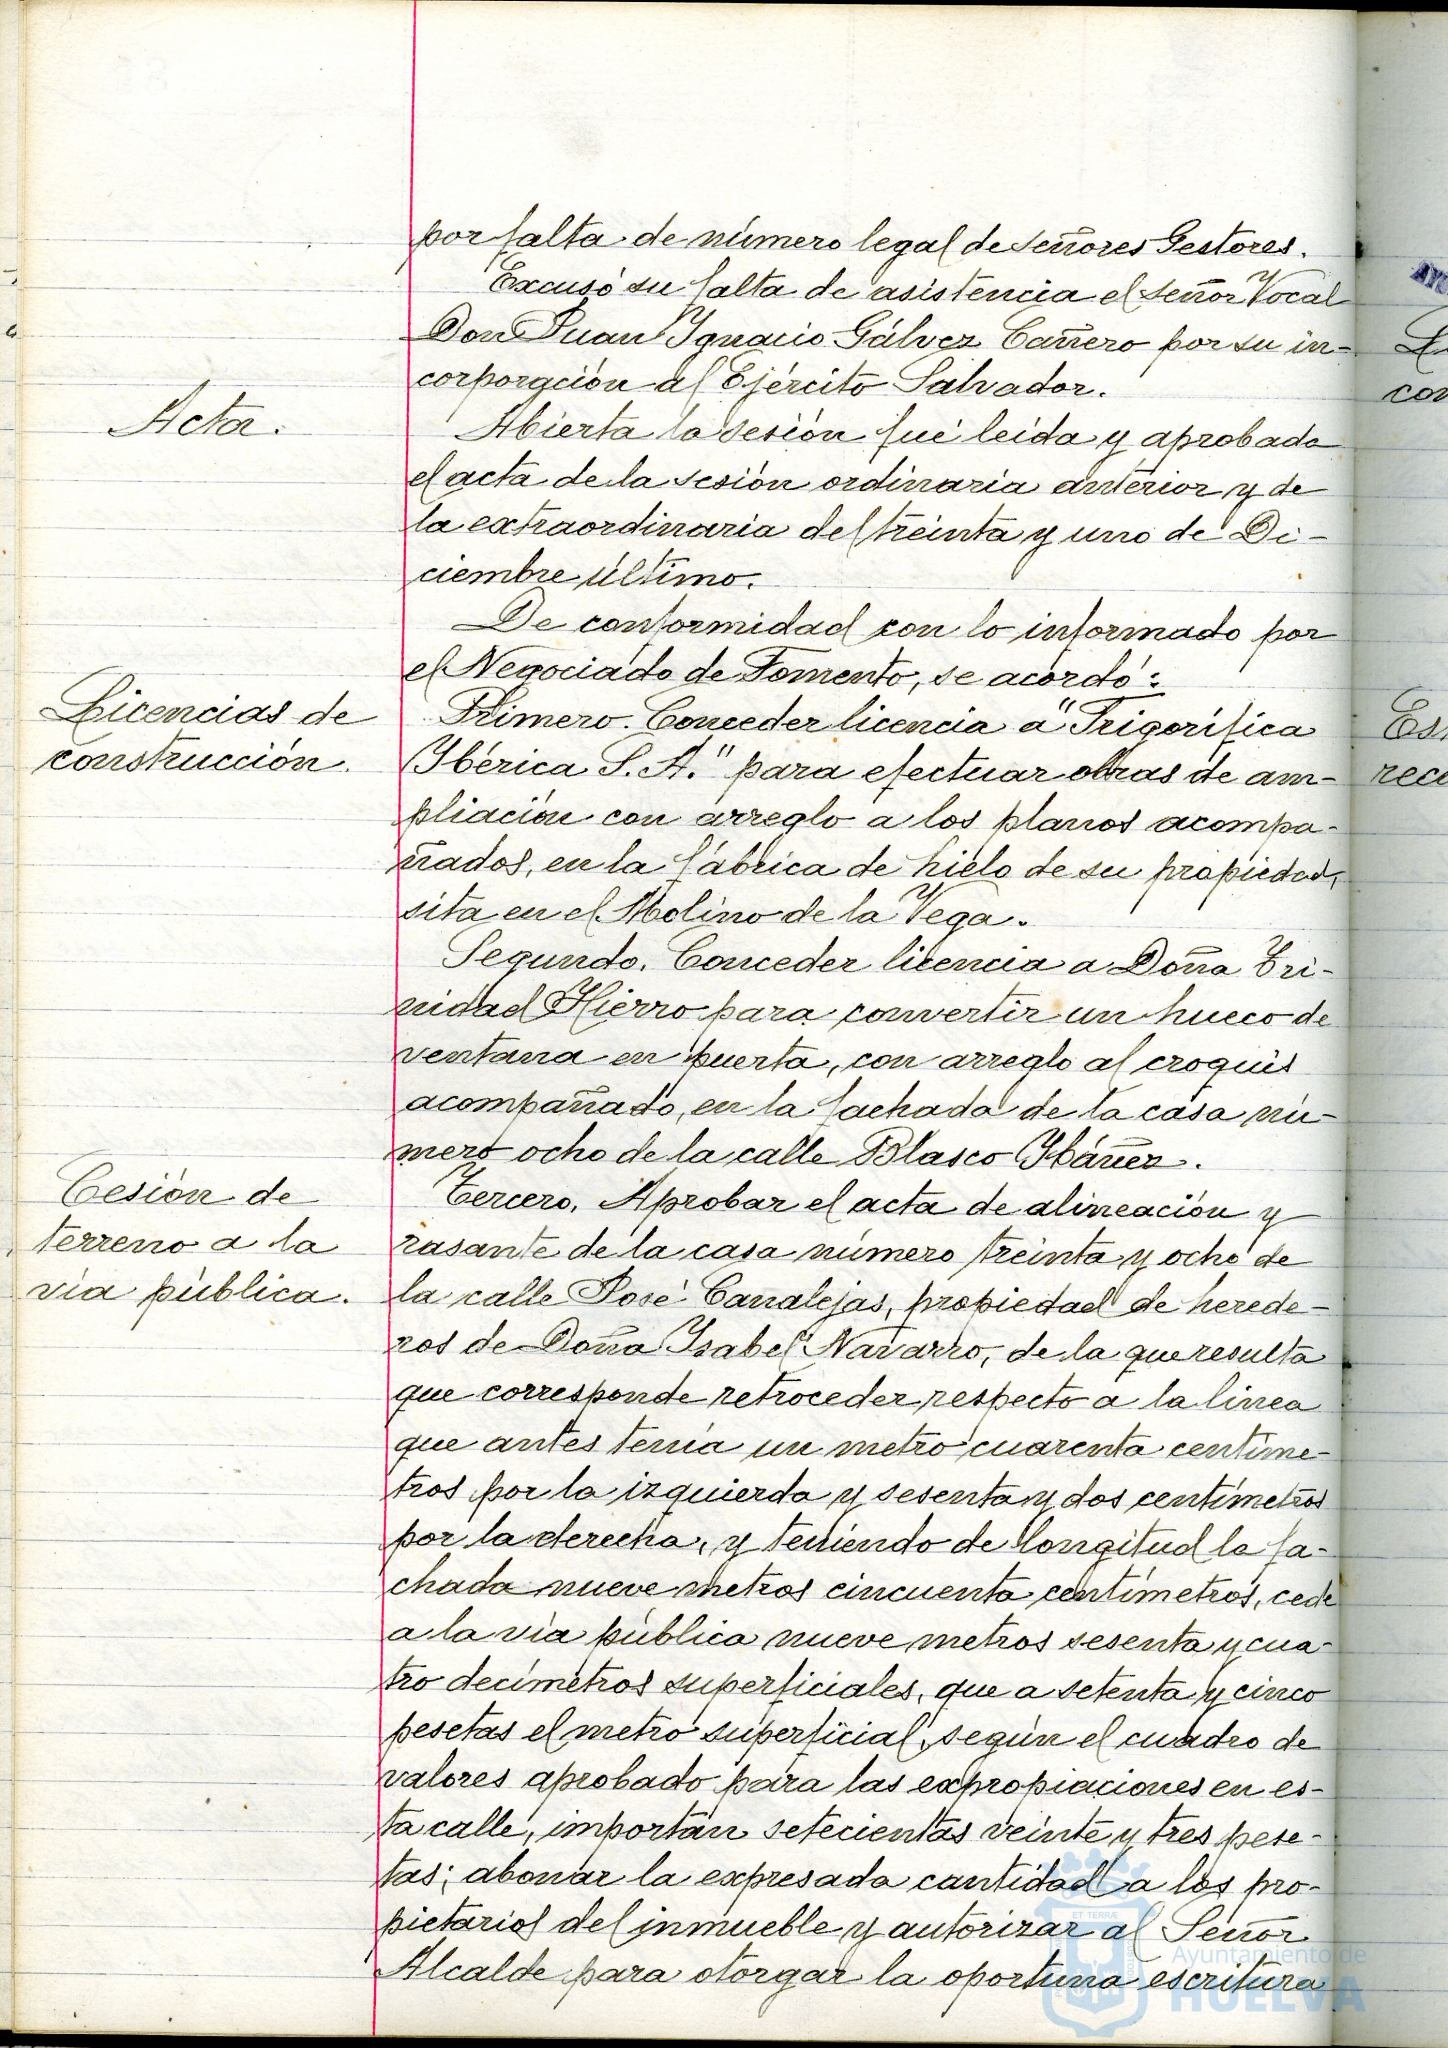 por falta de número legal de señores Gestores.
Excusó su falta de asistencia el señor Vocal
Don Juan Ignacio Gálvez Cañero por su in-
corporación al Ejército Salvador.
Acta.
Abierta la sesión fué leida y aprobada
el acta de la sesión ordinaria anterior y de
la extraordinaria del treinta y uno de Di-
ciembre último.
De conformidad con lo informado por
el Negociado de Fomento, se acordó:
Licencias de
construcción.
Primero. Conceder licencia a "Frigorífica
Ibérica S. A." para efectuar obras de am-
pliación con arreglo a los planos acompa-
ñados, en la fábrica de hielo de su propiedad,
sita en el Molino de la Vega.
Segundo. Conceder licencia a Doña Tri-
nidad Hierro para convertir un hueco de
ventana en puerta, con arreglo al croquis
acompañado, en la fachada de la casa nú-
mero ocho de la calle Blasco Ibáñez.
Cesión de
terreno a la
vía pública.
Tercero. Aprobar el acta de alineación y
rasante de la casa número treinta y ocho de
la calle José Canalejas, propiedad de herede-
ros de Doña Isabel Navarro, de la que resulta
que corresponde retroceder respecto a la linea
que antes tenía un metro cuarenta centíme-
tros por la izquierda y sesenta y dos centímetros
por la derecha, y teniendo de longitud la fa-
chada nueve metros cincuenta centímetros, cede
a la vía pública nueve metros sesenta y cua-
tro decímetros superficiales, que a setenta y cinco
pesetas el metro superficial, según el cuadro de
valores aprobado para las expropiaciones en es-
ta calle, importan setecientas veinte y tres pese-
tas; abonar la expresada cantidad a los pro-
pietarios del inmueble y autorizar al Señor
Alcalde para otorgar la oportuna escritura
Ayuntamiento de
HUELVA